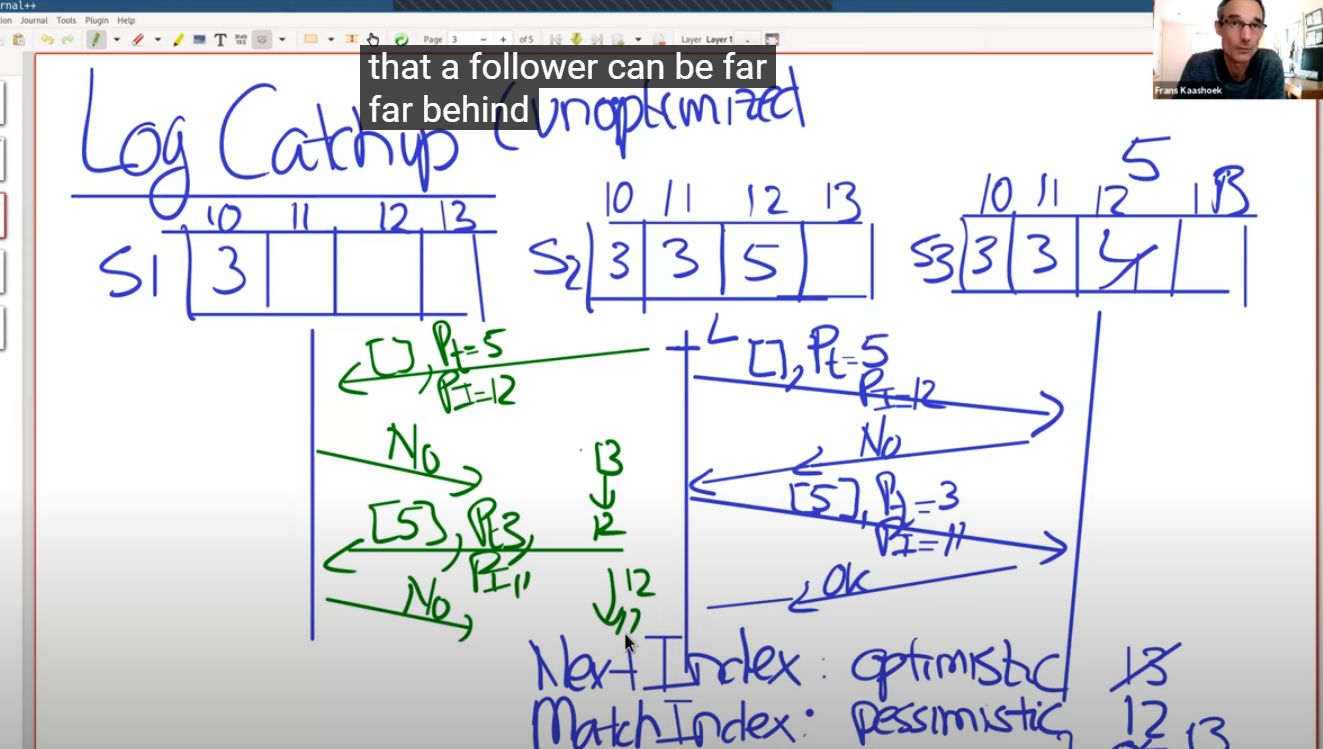 rnal++
ion Journal Tools Plugin Help
Page 3 of 5 Layer Layer 1
that a follower can be far
far behind
Frans Kaashoek
Log Catchup (unoptimized
5
10 11 12 13
10 11 12 13
10 11 12 13
S1 3
S2 3 3 5
S3 3 3 4
[], Pt=5
PI=12
L [], Pt=5
PI=12
No
13
No
12
[5], Pt=3
PI=11
[5], Pt3,
PI11
Ok
12
11
No
NextIndex: optimistic 13
MatchIndex: pessimistic 12
13